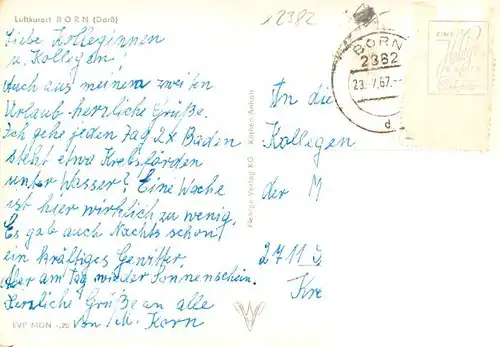 Luftkurort BORN (Darß)
Liebe Kolleginnen
u. Kollegen!
Auch aus meinem zweiten
Urlaub herzliche Grüße.
Ich gehe jeden Tag 2x Baden
steht etwa Krebsförden
unter Wasser? Eine Woche
ist hier wirklich zu wenig.
Es gab auch Nachts schon
ein kräftiges Gewitter,
Aber am Tag wieder Sonnenschein.
Herzliche Grüße an alle
von I. M. Korn
EVP MDN -,20
2382
BORN
2382
23. 7.67.--
d
An die
Kollegen
der M
2711
Kre